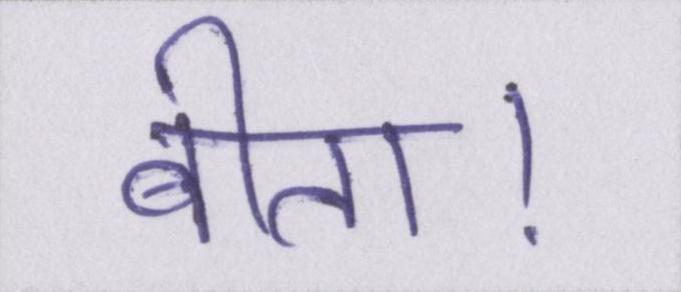 बीता!